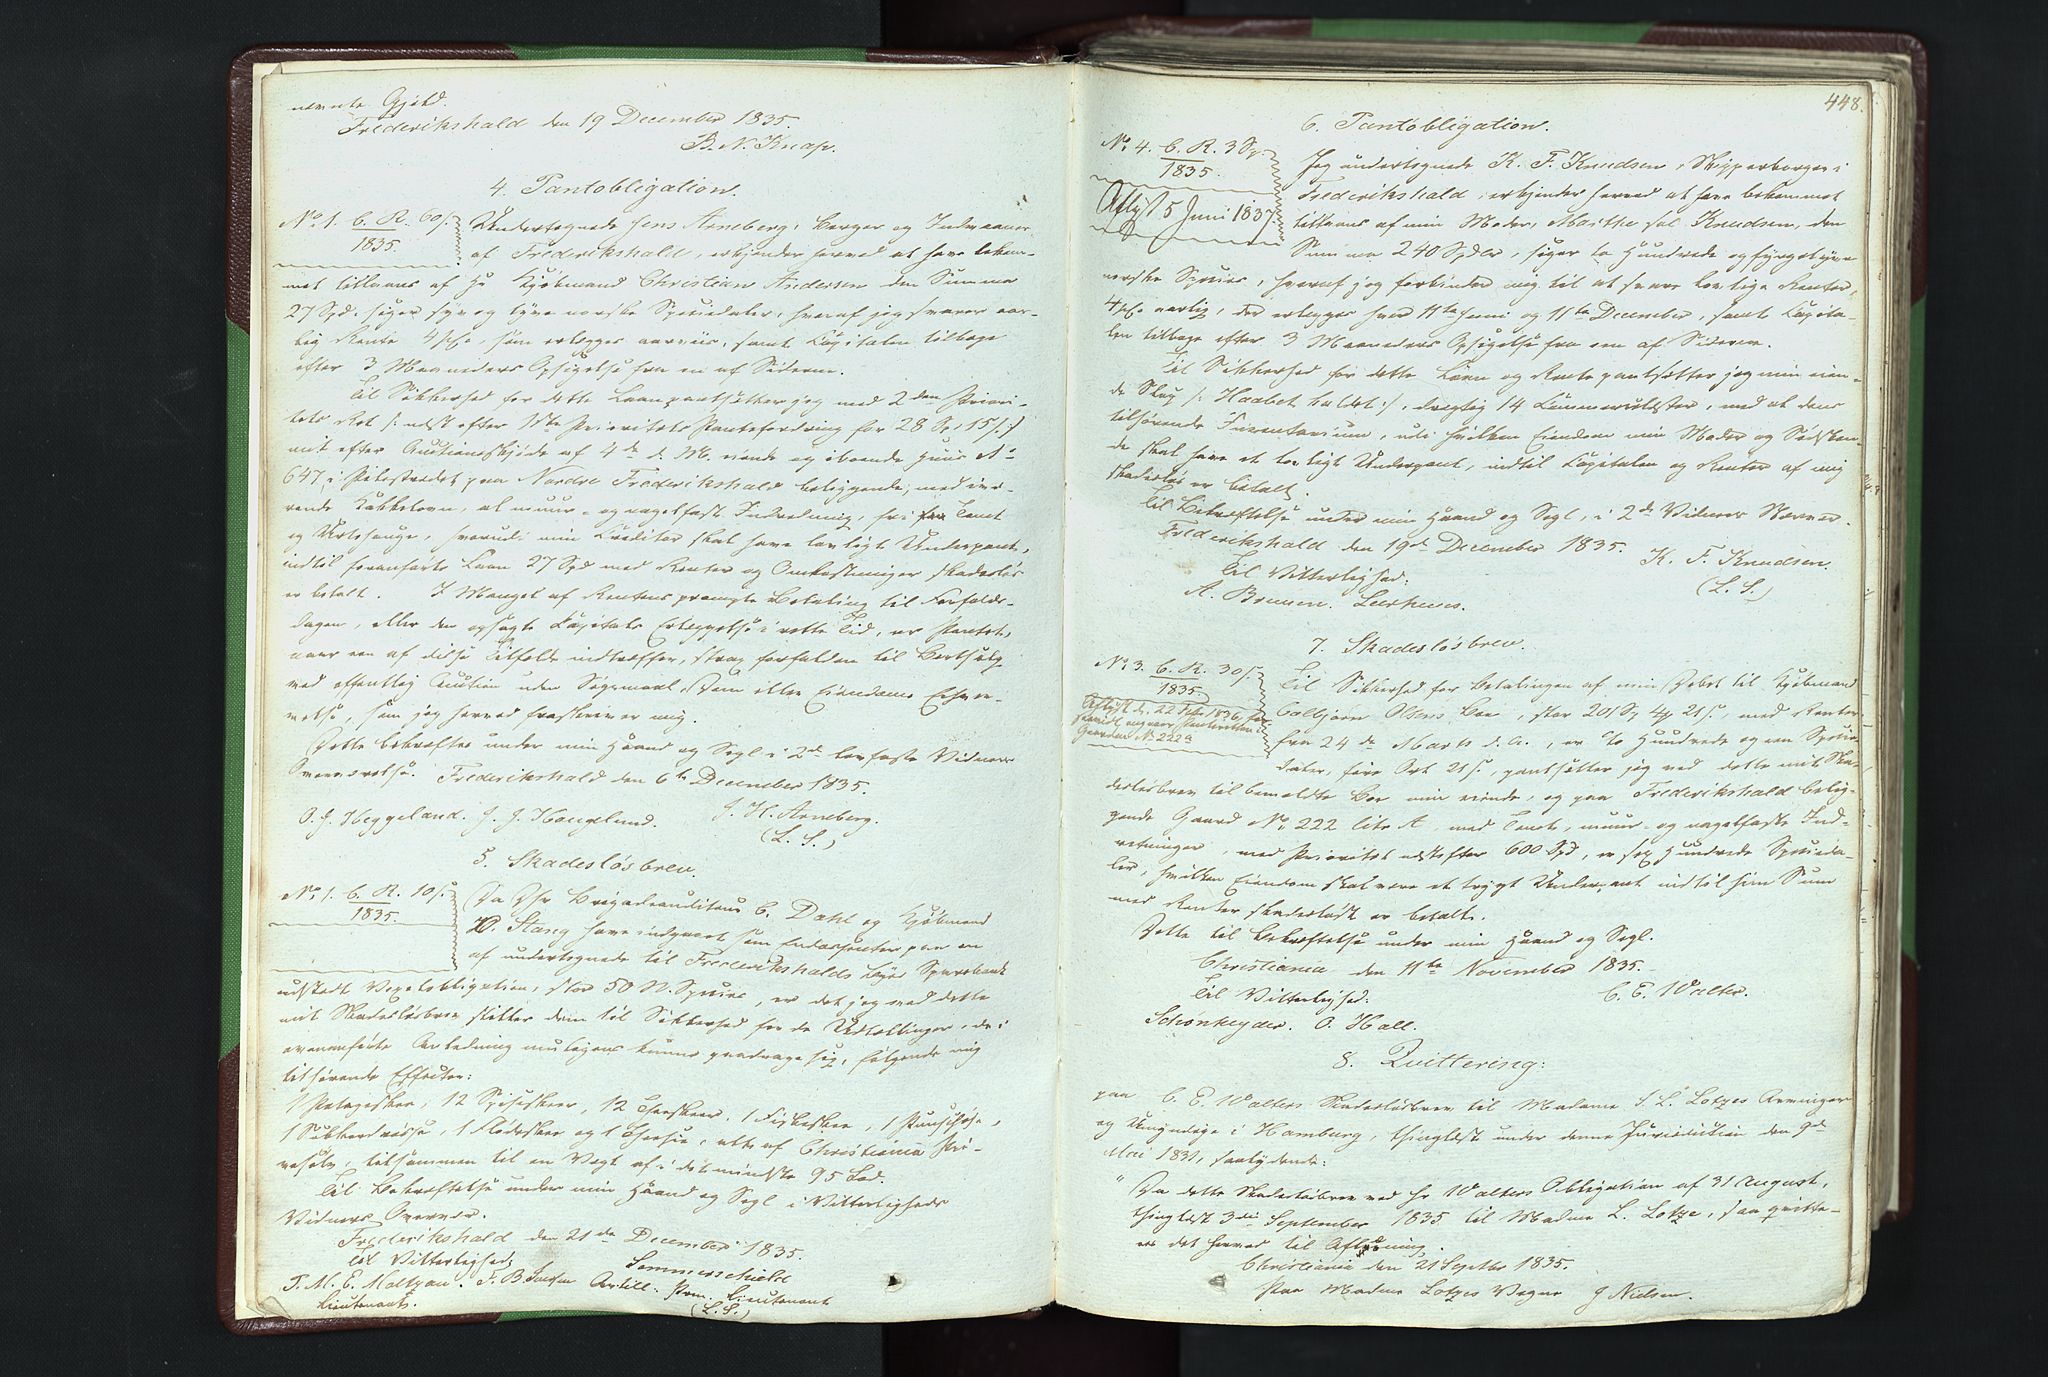 nævnte Gjæld.
Frederikshald den 19 December 1835.
B. N. Knap.
4. Pantobligation.
No 1. C. R. 60 s.
1835.
Undertegnede Jens Arneberg, Borger og Indvaaner
af Frederikshald, erkjender herved at have bekom-
met tillaans af Hr Kjøbmand Christian Andersen den Summa
27 Spd. siger syv og tyve norske Speciedaler, hvoraf jeg svarer aar-
lig Rente 4 pCt, som erlægges aarviis, samt Capitalen tilbage
efter 3 Maaneders Opsigelse fra en af Siderne.
Til Sikkerhed for dette Laan pantsætter jeg med 2den Priori-
tets Ret /: næst efter 1ste Prioritets Pantefordring for 28 Sp. 15 s :/
mit efter Auctionsskjøde af 4de d. M. eiende og iboende Huus No
647, i paa Nordre Frederikshald beliggende, med væ-
rende Kakkelovn, al muur- og nagelfast Indredning, fri Tomt
og Urtehauge, hvorudi min Creditor skal have lovligt Underpant,
indtil foranførte Laan 27 Spd med Renter og Omkostninger skadesløs
er betalt. I Mangel af Rentens prompte Betaling til Forfalds-
dagen, eller den opsagte Capitals Erlæggelse i rette Tid, er Pantet,
naar een af disse Tilfælde indtræffer, strax forfalden til Bortsalg
ved offentlig Auction uden Søgsmaal, Dom eller Eiendoms Erhver-
velse, som jeg herved fraskriver mig.
Dette bekræftes under min Haand og Segl i 2de lovfaste Vidners
Overværelse. Frederikshald den 6te December 1835.
O. J. Heggeland. J. J. Haugelund. J. H. Arneberg.
(L. S.)
5. Skadesløsbrev.
No 1. C. R. 10 s.
1835.
Da Dhr Brigadeauditeur C. Dahl og Kjøbmand
Stang have indgaaet som Endossenter paa en
af undertegnede til Frederikshalds Byes Sparebank
udstedt Vexelobligation, stor 50 N. Specier, er det jeg ved dette
mit Skadesløsbrev stiller dem til Sikkerhed for de Udtællinger, de i
ovenanførte Anledning muligens kunne paadrage sig, følgende mig
tilhørende Effecter:
1 Potageskee, 12 Spiseskeer, 12 Theeskeer, 1 Fiskeskee, 1 Punschøse,
1 Sukkerdaase, 1 Flødeskee og 1 Theesie, alt af Christiania Prø-
vesølv, tilsammen til en Vægt af i det mindste 95 Lod.
Til Bekræftelse under min Haand og Segl i Vitterligheds
Vidners Overvær.
Frederikshald den 21de December 1835.
Til Vitterlighed: Sommerschield
T. M. E. Moltzau. F. B. Artill. Prm. Lieutenant
Lieutenants. (L. S.)
448.
6. Pantobligation.
No 4. C. R. 3 Sp.
1835.
Aflyst 5 Juni 1837.
Jeg undertegnede K. F. Knudsen, Skipperborger i
Frederikshald, erkjender herved at have bekommet
tillaans af min Moder, Marthe sal. Knudsen, den
Summa 240 Spdlr, siger to Hundrede og fyrgetyve
norske Specier, hvoraf jeg forbinder mig til at svare lovlige Renter,
4 pCt. aarlig, der erlægges hver 11te Juni og 11te December, samt Capita-
len tilbage efter 3 Maaneders Opsigelse fra en af Siderne.
Til Sikkerhed for dette Laan og Rente pantsætter jeg min eien-
de Slup /: Haabet kaldet :/, drægtig 14 Commercelæster, med al dens
tilhørende Inventarium, udi hvilken Eiendom min Moder og Sødsken-
de skal have et lovligt Underpant, indtil Capitalen og Renter af mig
skadesløs er betalt.
Til Bekræftelse under min Haand og Segl, i 2de Vidners Nærvær.
Frederikshald den 19de December 1835. K. F. Knudsen.
Til Vitterlighed: (L. S.)
A. Bremer.
7. Skadesløsbrev.
No 3. C. R. 30 s.
1835
Aflyst d. 22 Feb. 1836,
Gaarden No 222a
Til Sikkerhed for Betalingen af min Debet til Kjøbmand
Colbjørn Olsens Boe, stor 201 Sp 4 21 s, med Renter
fra 24de Marts d. A., er to Hundrede og een Specie-
daler, fire Ort 21 s., pantsætter jeg ved dette mit Ska-
desløsbrev til bemeldte Boe min eiende, og paa Frederikshald belig-
gende Gaard No 222 litr A, med Tomt, muur- og nagelfaste Ind-
retninger, med Prioritet næstefter 600 Spd, er sex Hundrede Specieda-
ler, hvilken Eiendom skal være et trygt Underpant indtil hin Sum
med Renter skadesløst er betalt.
Dette til Bekræftelse under min Haand og Segl.
Christiania den 11te November 1835.
Til Vitterlighed: C. E. Walter.
Schønheyder. O. Hall.
8. Quittering:
paa C. E. Walters Skadesløsbrev til Madame S. L. Lotzes Arvinger
og Umyndige i Hamburg, thinglæst under denne Jurisdiction den 9de
Mai 1831, saalydende:
"Da dette Skadesløsbrev ved Hr Walters Obligation af 31 August,
thinglæst 3die September 1835 til Madme L. Lotze, saa quitte-
res det herved til Aflæsning.
Christiania den 21 Septbr 1835.
Paa Madme Lotzes Vegne J Nielsen.